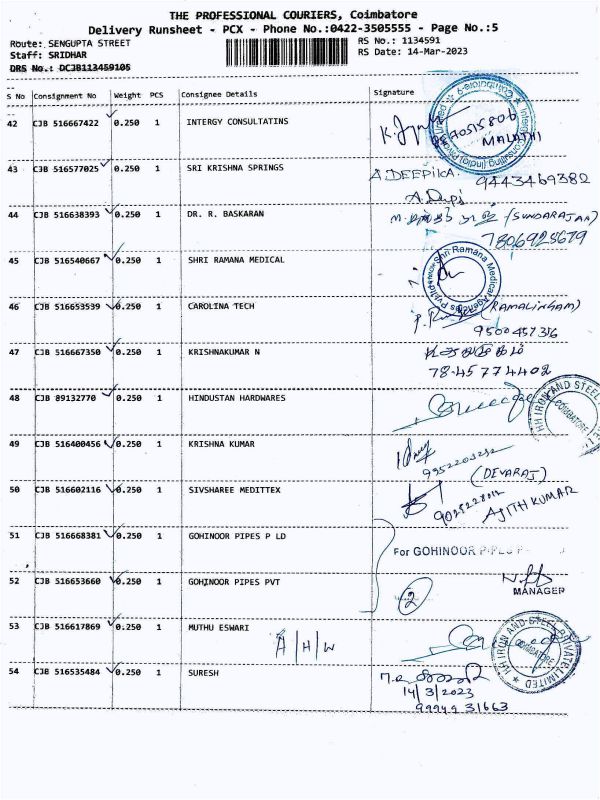 THE PROFESSIONAL COURIERS, Coimbatore
Delivery Runsheet - PCX - Phone No.:0422-3505555 - Page No.:5
Route: SENGUPTA STREET RS No.: 1134591
Staff: SRIDHAR RS Date: 14-Mar-2023
DRS No.: DCJB113459105
S No Consignment No Weight PCS Consignee Details Signature
42 CJB 516667422 0.250 1 INTERGY CONSULTATINS
MALATHI
43 CJB 516577025 0.250 1 SRI KRISHNA SPRINGS A.DEEPIKA. 9443469382
44 CJB 516638393 0.250 1 DR. R. BASKARAN (SUNDARAJAN)
7806925679
45 CJB 516540667 0.250 1 SHRI RAMANA MEDICAL
Shri Ramana Medical Agencies
46 CJB 516653539 0.250 1 CAROLINA TECH (RAMALINGAM)
9500457316
47 CJB 516667350 0.250 1 KRISHNAKUMAR N
7845774402
48 CJB 89132770 0.250 1 HINDUSTAN HARDWARES
HH IRON AND STEEL
COIMBATORE
49 CJB 516400456 0.250 1 KRISHNA KUMAR
(DEVARAJ)
50 CJB 516602116 0.250 1 SIVSHAREE MEDITTEX
AJITH KUMAR
51 CJB 516668381 0.250 1 GOHINOOR PIPES P LD
For GOHINOOR PIPES P
52 CJB 516653660 0.250 1 GOHINOOR PIPES PVT
2
MANAGER
53 CJB 516617869 0.250 1 MUTHU ESWARI
A/H/W
HH IRON AND STEEL PRIVATE LIMITED
COIMBATORE
54 CJB 516535484 0.250 1 SURESH
14/3/2023
99949 31663